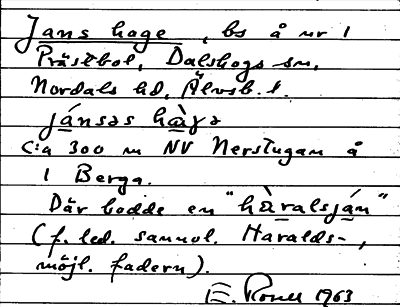 Jans hage, bs å nr 1
Prästbol, Dalskogs sn,
Nordals hd, Älvsb. l.
jánsəs hàɣə
c:a 300 m NV Nerstugan å
1 Berga.
Där bodde en "hàralsján"
(f. led. sannol. Haralds-,
möjl. fadern).
E. 1963